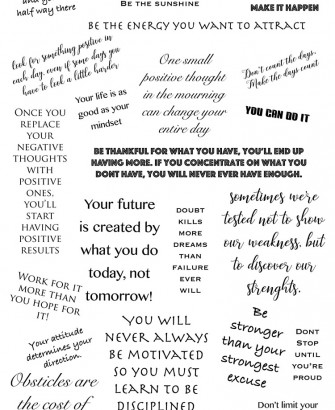 half way there
BE THE SUNSHINE
MAKE IT HAPPEN
BE THE ENERGY YOU WANT TO ATTRACT
look for something positive in
each day, even if some days you
have to look a little harder
One small
positive thought
in the mourning
can change your
entire day
Don't count the days.
Make the days count
Your life is as
good as your
mindset
YOU CAN DO IT
ONCE YOU
REPLACE
YOUR
NEGATIVE
THOUGHTS
WITH
POSITIVE
ONES.
YOU'LL
START
HAVING
POSITIVE
RESULTS
BE THANKFUL FOR WHAT YOU HAVE, YOU'LL END UP
HAVING MORE. IF YOU CONCENTRATE ON WHAT YOU
DONT HAVE, YOU WILL NEVER EVER HAVE ENOUGH.
Your future
is created by
what you do
today, not
tomorrow!
DOUBT
KILLS
MORE
DREAMS
THAN
FAILURE
EVER
WILL
sometimes were
tested not to show
our weakness, but
to discover our
strenghts.
WORK FOR IT
MORE THAN
YOU HOPE FOR
IT!
Your attitude
determines your
direction.
YOU WILL
NEVER ALWAYS
BE MOTIVATED
SO YOU MUST
LEARN TO BE
DISCIPLINED
Be
stronger
than your
strongest
excuse
DONT
STOP
UNTIL
YOU'RE
PROUD
Obsticles are
the cost of
Don't limit your